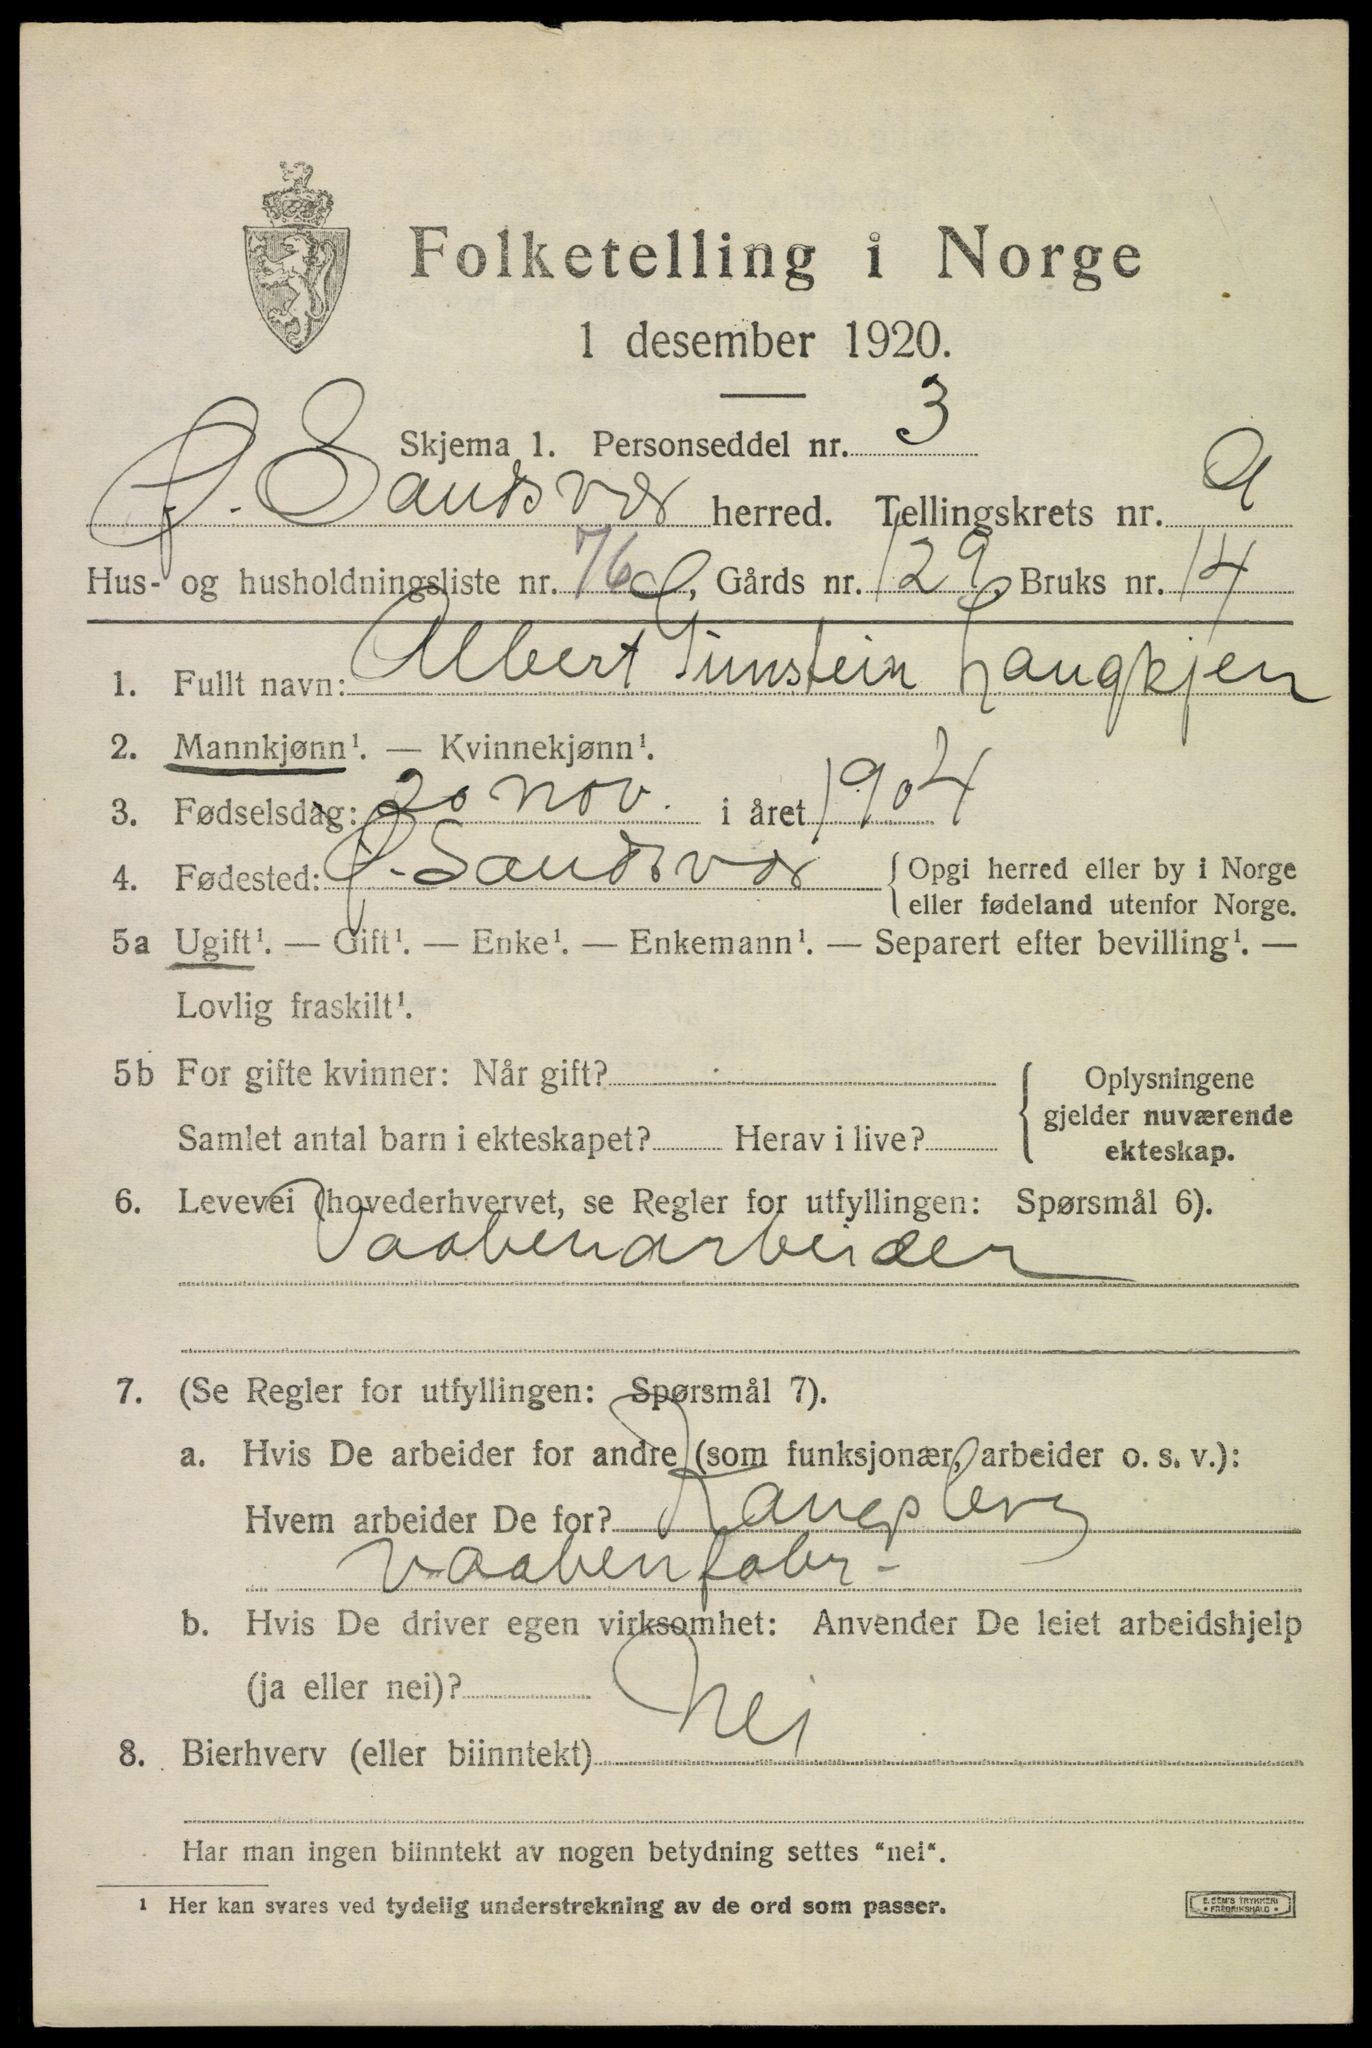 Folketelling i Norge
1 desember 1920.
Skjema 1. Personseddel nr. 3
Ø. Sandsvær herred. Tellingskrets nr. 9
Hus- og husholdningsliste nr. 76 Gårds nr. 129, Bruks nr. 14
1. Fullt navn: Albert Gunstein Langkjen
2. Mannkjønn¹. — Kvinnekjønn¹.
3. Fødselsdag: 20 nov. i året 1904
4. Fødested: Ø. Sandsvær {Opgi herred eller by i Norge
eller fødeland utenfor Norge.
5a Ugift¹. — Gift¹. — Enke¹. — Enkemann¹. — Separert efter bevilling¹. —
Lovlig fraskilt¹.
5b For gifte kvinner: Når gift?
Samlet antal barn i ekteskapet? Herav i live?
{Oplysningene
gjelder nuværende
ekteskap.
6. Levevei (hovederhvervet, se Regler for utfyllingen: Spørsmål 6).
Vaabenarbeider
7. (Se Regler for utfyllingen: Spørsmål 7).
a. Hvis De arbeider for andre (som funksjonær, arbeider o. s. v.):
Hvem arbeider De for? Kongsberg
Vaabenfabr.
b. Hvis De driver egen virksomhet: Anvender De leiet arbeidshjelp
(ja eller nei)?
8. Bierhverv (eller biinntekt) Nei
Har man ingen biinntekt av nogen betydning settes "nei".
¹ Her kan svares ved tydelig understrekning av de ord som passer.
E. SEM'S TRYKKERI
• FREDRIKSHALD •